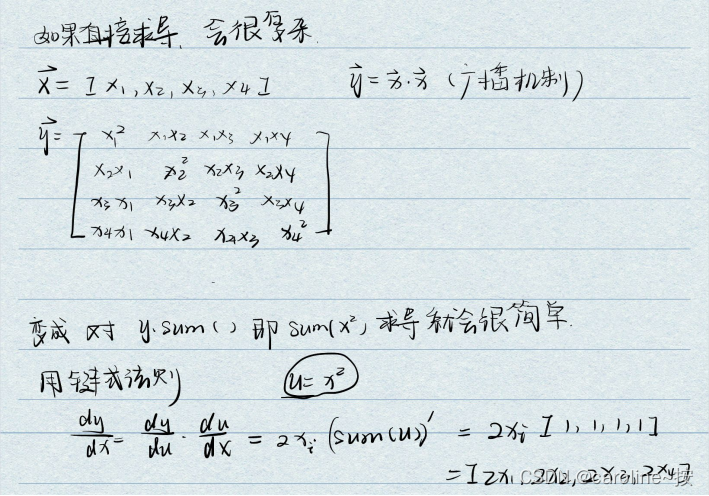 如果直接求导,会很复杂.
x⃗ = [x₁, x₂, x₃, x₄] y⃗ = x⃗·x⃗ (广播机制)
y⃗ = [ x₁² x₁x₂ x₁x₃ x₁x₄
x₂x₁ x₂² x₂x₃ x₂x₄
x₃x₁ x₃x₂ x₃² x₃x₄
x₄x₁ x₄x₂ x₄x₃ x₄² ]
变成 对 y.sum() 即 sum(x²),求导就会很简单.
用链式法则 u=x²
dy/dx = dy/du · du/dx = 2xᵢ (sum(u))′ = 2xᵢ [1,1,1,1]
=[2x₁, 2x₂, 2x₃, 2x₄]
CSDN @caroline~按